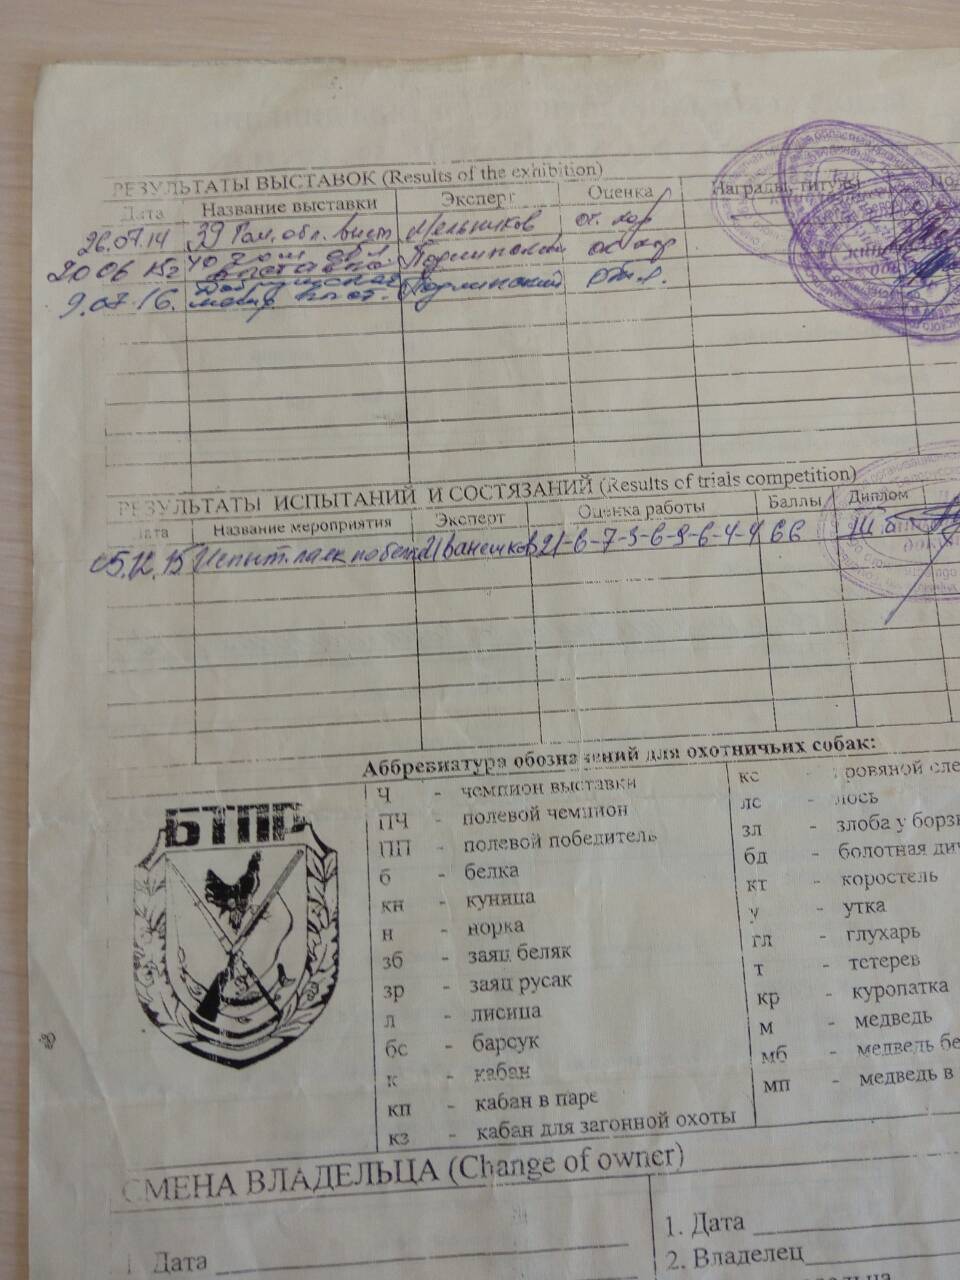 РЕЗУЛЬТАТЫ ВЫСТАВОК (Results of the exhibition)
Дата Название выставки Эксперт Оценка Награды, титулы
26.07.14 39 Гом. обл. выст Мельников оч. хор
20 06 15г 40 обл. выставка Подлинский оч хор
9.07.16. Подлинский отл.
РЕЗУЛЬТАТЫ ИСПЫТАНИЙ И СОСТЯЗАНИЙ (Results of trials competition)
Дата Название мероприятия Эксперт Оценка работы Баллы Диплом
05.12.15 Испыт. 66 III
Аббревиатура обозначений для охотничьих собак:
БТПР
Ч - чемпион выставки
ПЧ - полевой чемпион
ПП - полевой победитель
б - белка
кн - куница
н - норка
зб - заяц беляк
зр - заяц русак
л - лисица
бс - барсук
к - кабан
кп - кабан в паре
кз - кабан для загонной охоты
кс - ровяной сле
лс - лось
зл - злоба у борз
бд - болотная ди
кт - коростель
у - утка
гл - глухарь
т - тетерев
кр - куропатка
м - медведь
мб - медведь бе
мп - медведь в
СМЕНА ВЛАДЕЛЬЦА (Change of owner)
1 Дата
1. Дата
2. Владелец